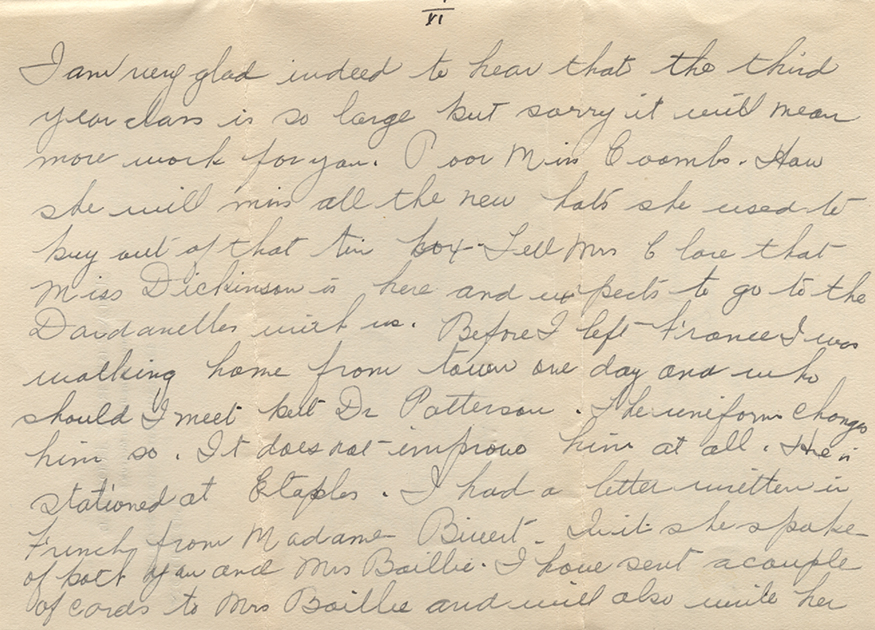 VI
I am very glad indeed to hear that the third
year class is so large but sorry it will mean
more work for you. Poor Miss Coombs. How
she will miss all the new hats she used to
buy out of that tin box. Tell Mrs Clare that
Miss Dickinson is here and expects to go to the
Dardanelles with us. Before I left France I was
walking home from town one day and who
should I meet but Dr Patterson. The uniform changes
him so. It does not improve him at all. He is
stationed at Etaples. I had a letter written in
French from Madame In it she spoke
of both you and Mrs Baillie. I have sent a couple
of cards to Mrs Baillie and will also write her